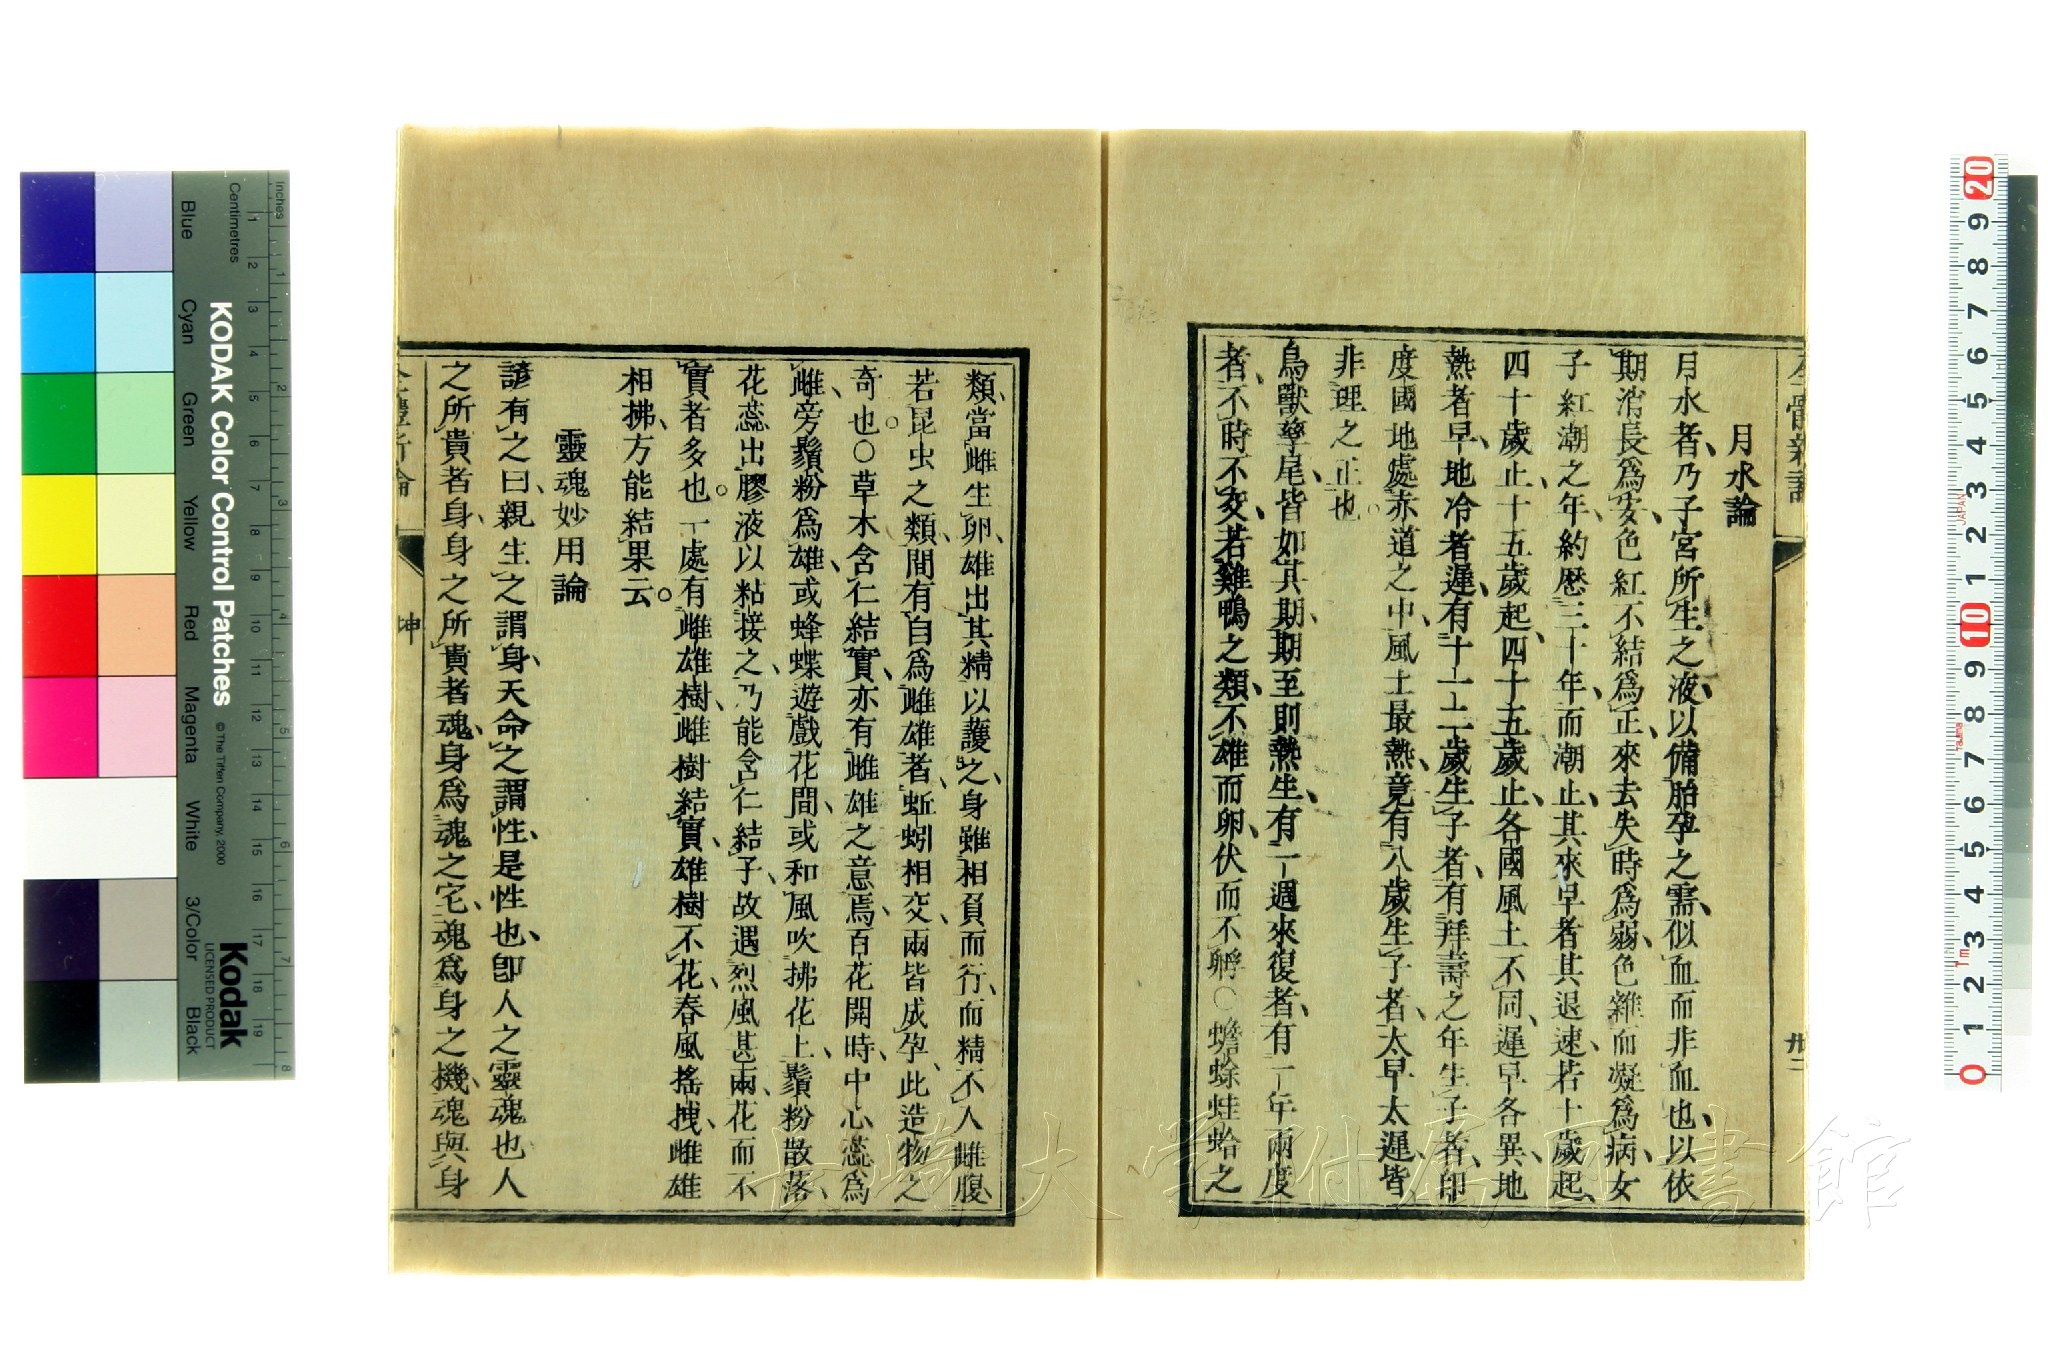 月水論
月水者、乃子宮所生之液、以備胎孕之需、似血而非血也、以依
期消長爲安、色紅不結爲正、來去失時爲弱、色雜而凝爲病、女
子紅潮之年、約歷三十年而潮止、其來早者其退速、若十歲起、
四十歲止、十五歲起、四十五歲止、各國風土不同、遲早各異、地
熱者早、地冷者遲、有十一二歲生子者、有拜壽之年生子者、印
度國地處赤道之中、風土最熱、竟有八歲生子者、太早太遲、皆
非理之正也。
鳥獸孳尾、皆如其期、期至則熱生、有一週來復者、有一年兩度
者、不時不交、若雞鴨之類、不雄而卵、伏而不孵○蟾蜍蛙蛤之
類、當雌生卵、雄出其精以護之、身雖相負而行、而精不入雌腹、
若昆虫之類、間有自爲雌雄者、蚯蚓相交、兩皆成孕、此造物之
奇也。○草木含仁結實、亦有雌雄之意焉、百花開時、中心蕊爲
雌、旁鬚粉爲雄、或蜂蝶遊戲花間、或和風吹拂花上、鬚粉散落、
花蕊出膠液以粘接之、乃能含仁結子、故遇烈風甚雨、花而不
實者多也。一處有雌雄樹、雌樹結實、雄樹不花、春風搖拽、雌雄
相拂、方能結果云。
靈魂妙用論
諺有之曰、親生之謂身、天命之謂性、是性也、卽人之靈魂也、人
之所貴者身、身之所貴者魂、身爲魂之宅、魂爲身之機、魂與身
坤
卅二
長崎大学附属図書館
KODAK Color Control Patches
© The Tiffen Company, 2000
Kodak
LICENSED PRODUCT
Inches
Centimetres
Blue
Cyan
Green
Yellow
Red
Magenta
White
3/Color
Black